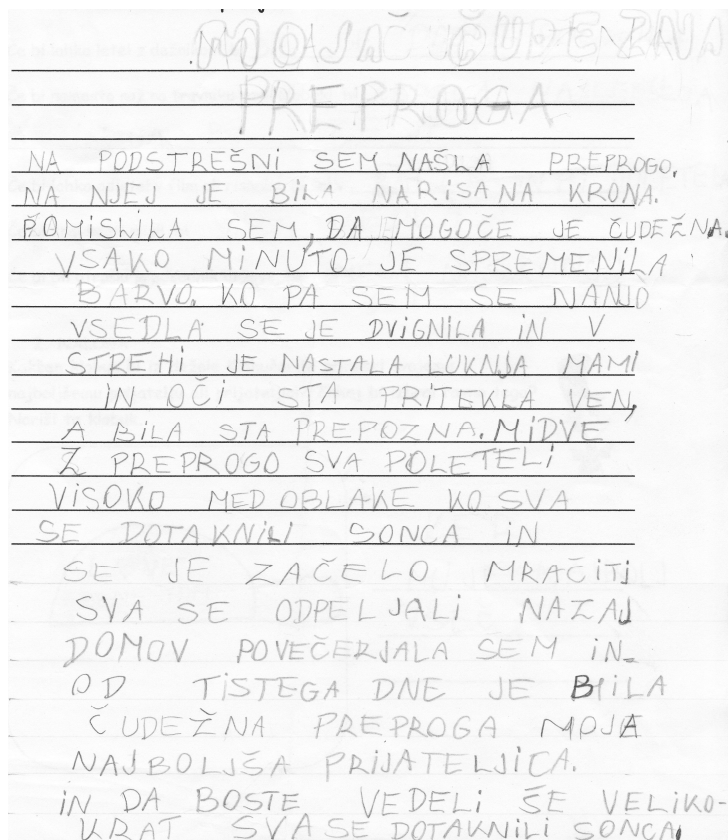 MOJA ČUDEŽNA
PREPROGA
NA PODSTREŠNI SEM NAŠLA PREPROGO.
NA NJEJ JE BILA NARISANA KRONA.
POMISLILA SEM, DA MOGOČE JE ČUDEŽNA.
VSAKO MINUTO JE SPREMENILA
BARVO. KO PA SEM SE NANJO
VSEDLA SE JE DVIGNILA IN V
STREHI JE NASTALA LUKNJA MAMI
I OČI STA PRITEKLA VEN,
A BILA STA PREPOZNA. MIDVE
Z PREPROGO SVA POLETELI
VISOKO MED OBLAKE KO SVA
SE DOTAKNILI SONCA IN
SE JE ZAČELO MRAČITI
SVA SE ODPELJALI NAZAJ
DOMOV POVEČERJALA SEM IN
OD TISTEGA DNE JE BILA
ČUDEŽNA PREPROGA MOJA
NAJBOLJŠA PRIJATELJICA.
IN DA BOSTE VEDELI ŠE VELIKO-
KRAT SVA SE DOTAKNILI SONCA.